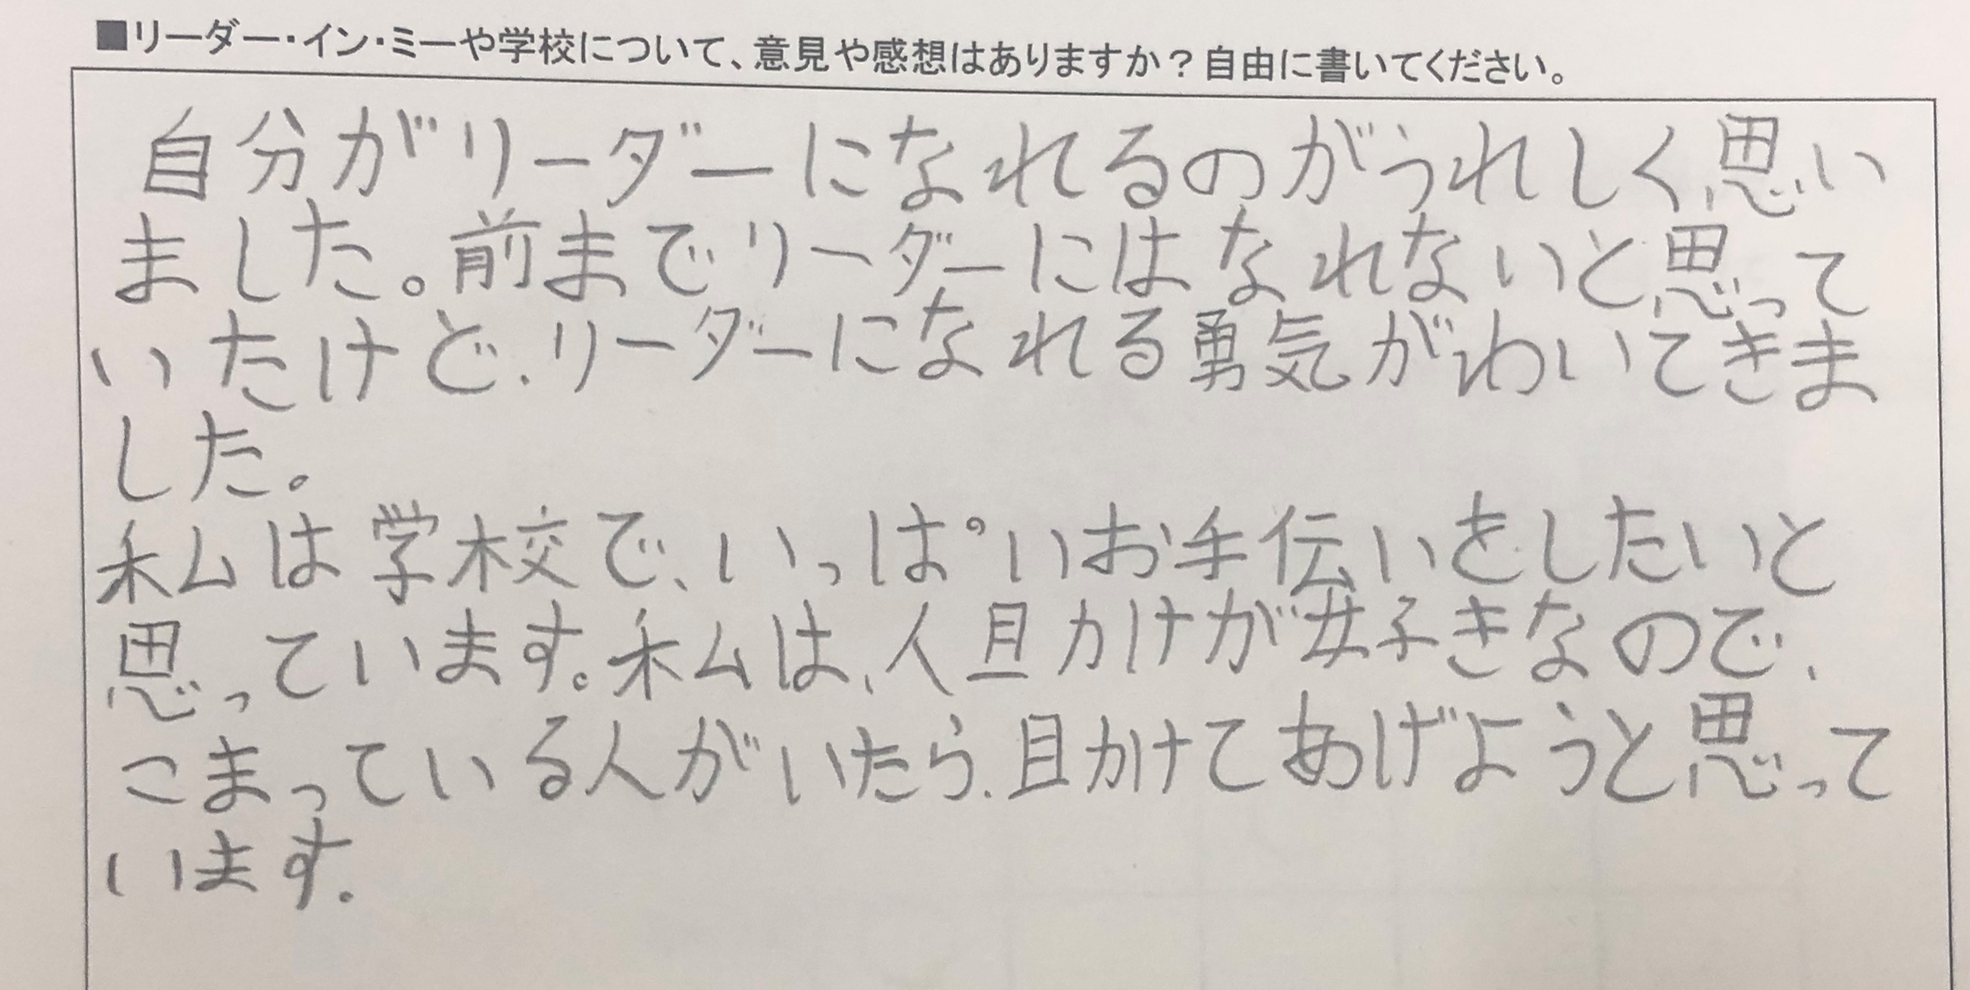 ■リーダー・イン・ミーや学校について、意見や感想はありますか？自由に書いてください。
自分がリーダーになれるのがうれしく思い
ました。前までリーダーにはなれないと思って
いたけど、リーダーになれる勇気がわいてきま
した。
私は学校で、いっぱいお手伝いをしたいと
思っています。私は、人助けが好きなので、
こまっている人がいたら、助けてあげようと思って
います。